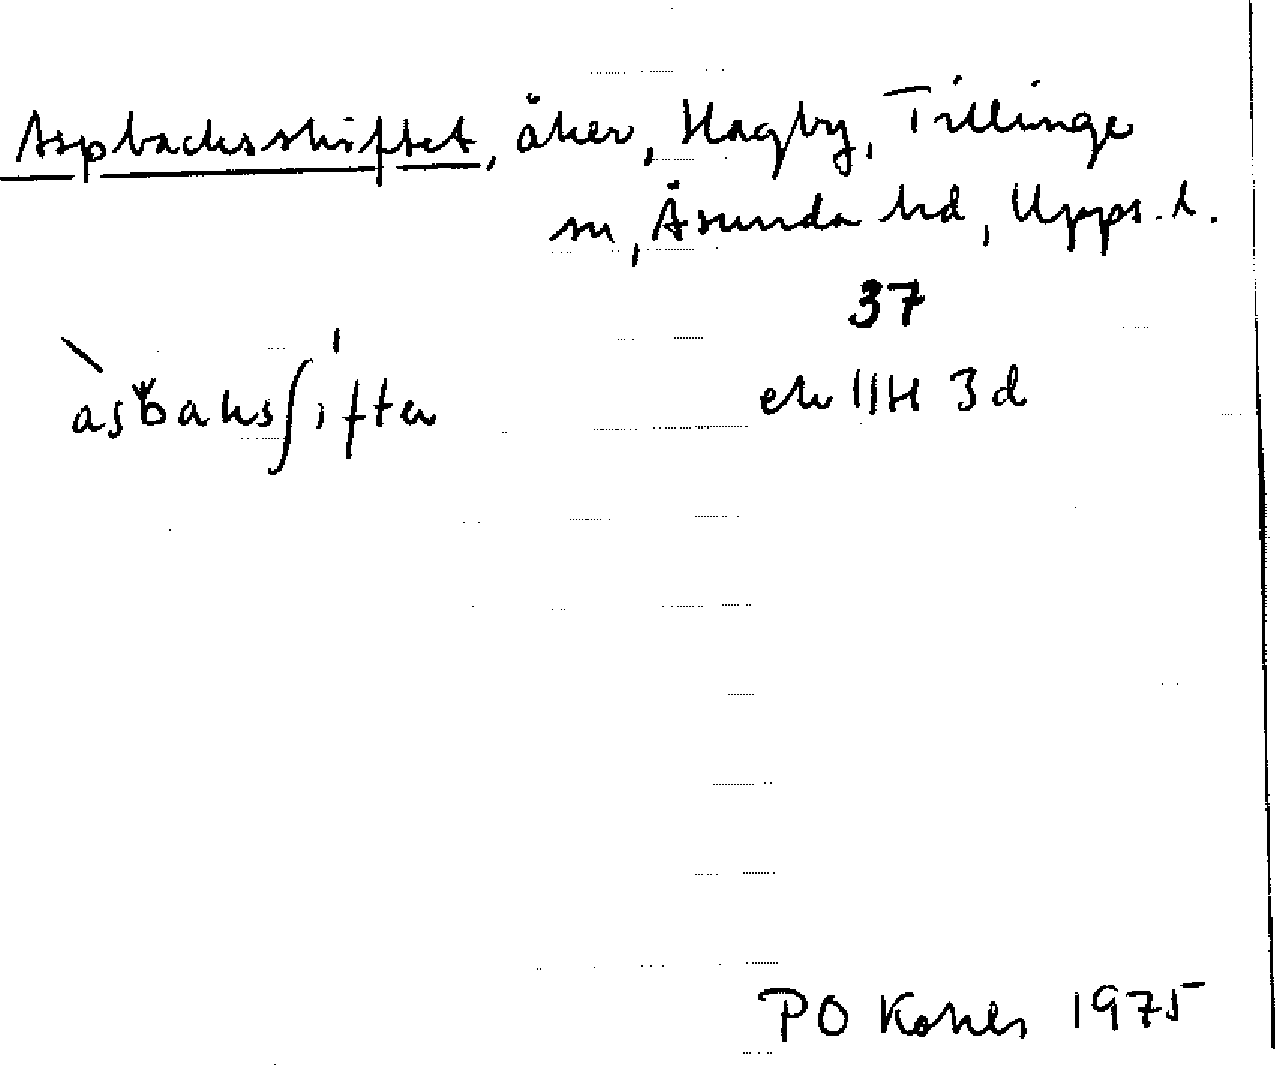 Aspbacksskiftet, åker, Hagby, Tillinge
sn, Åsunda hd, Upps. l.
37
asbaksʃifta
ek 11H 3d
1975